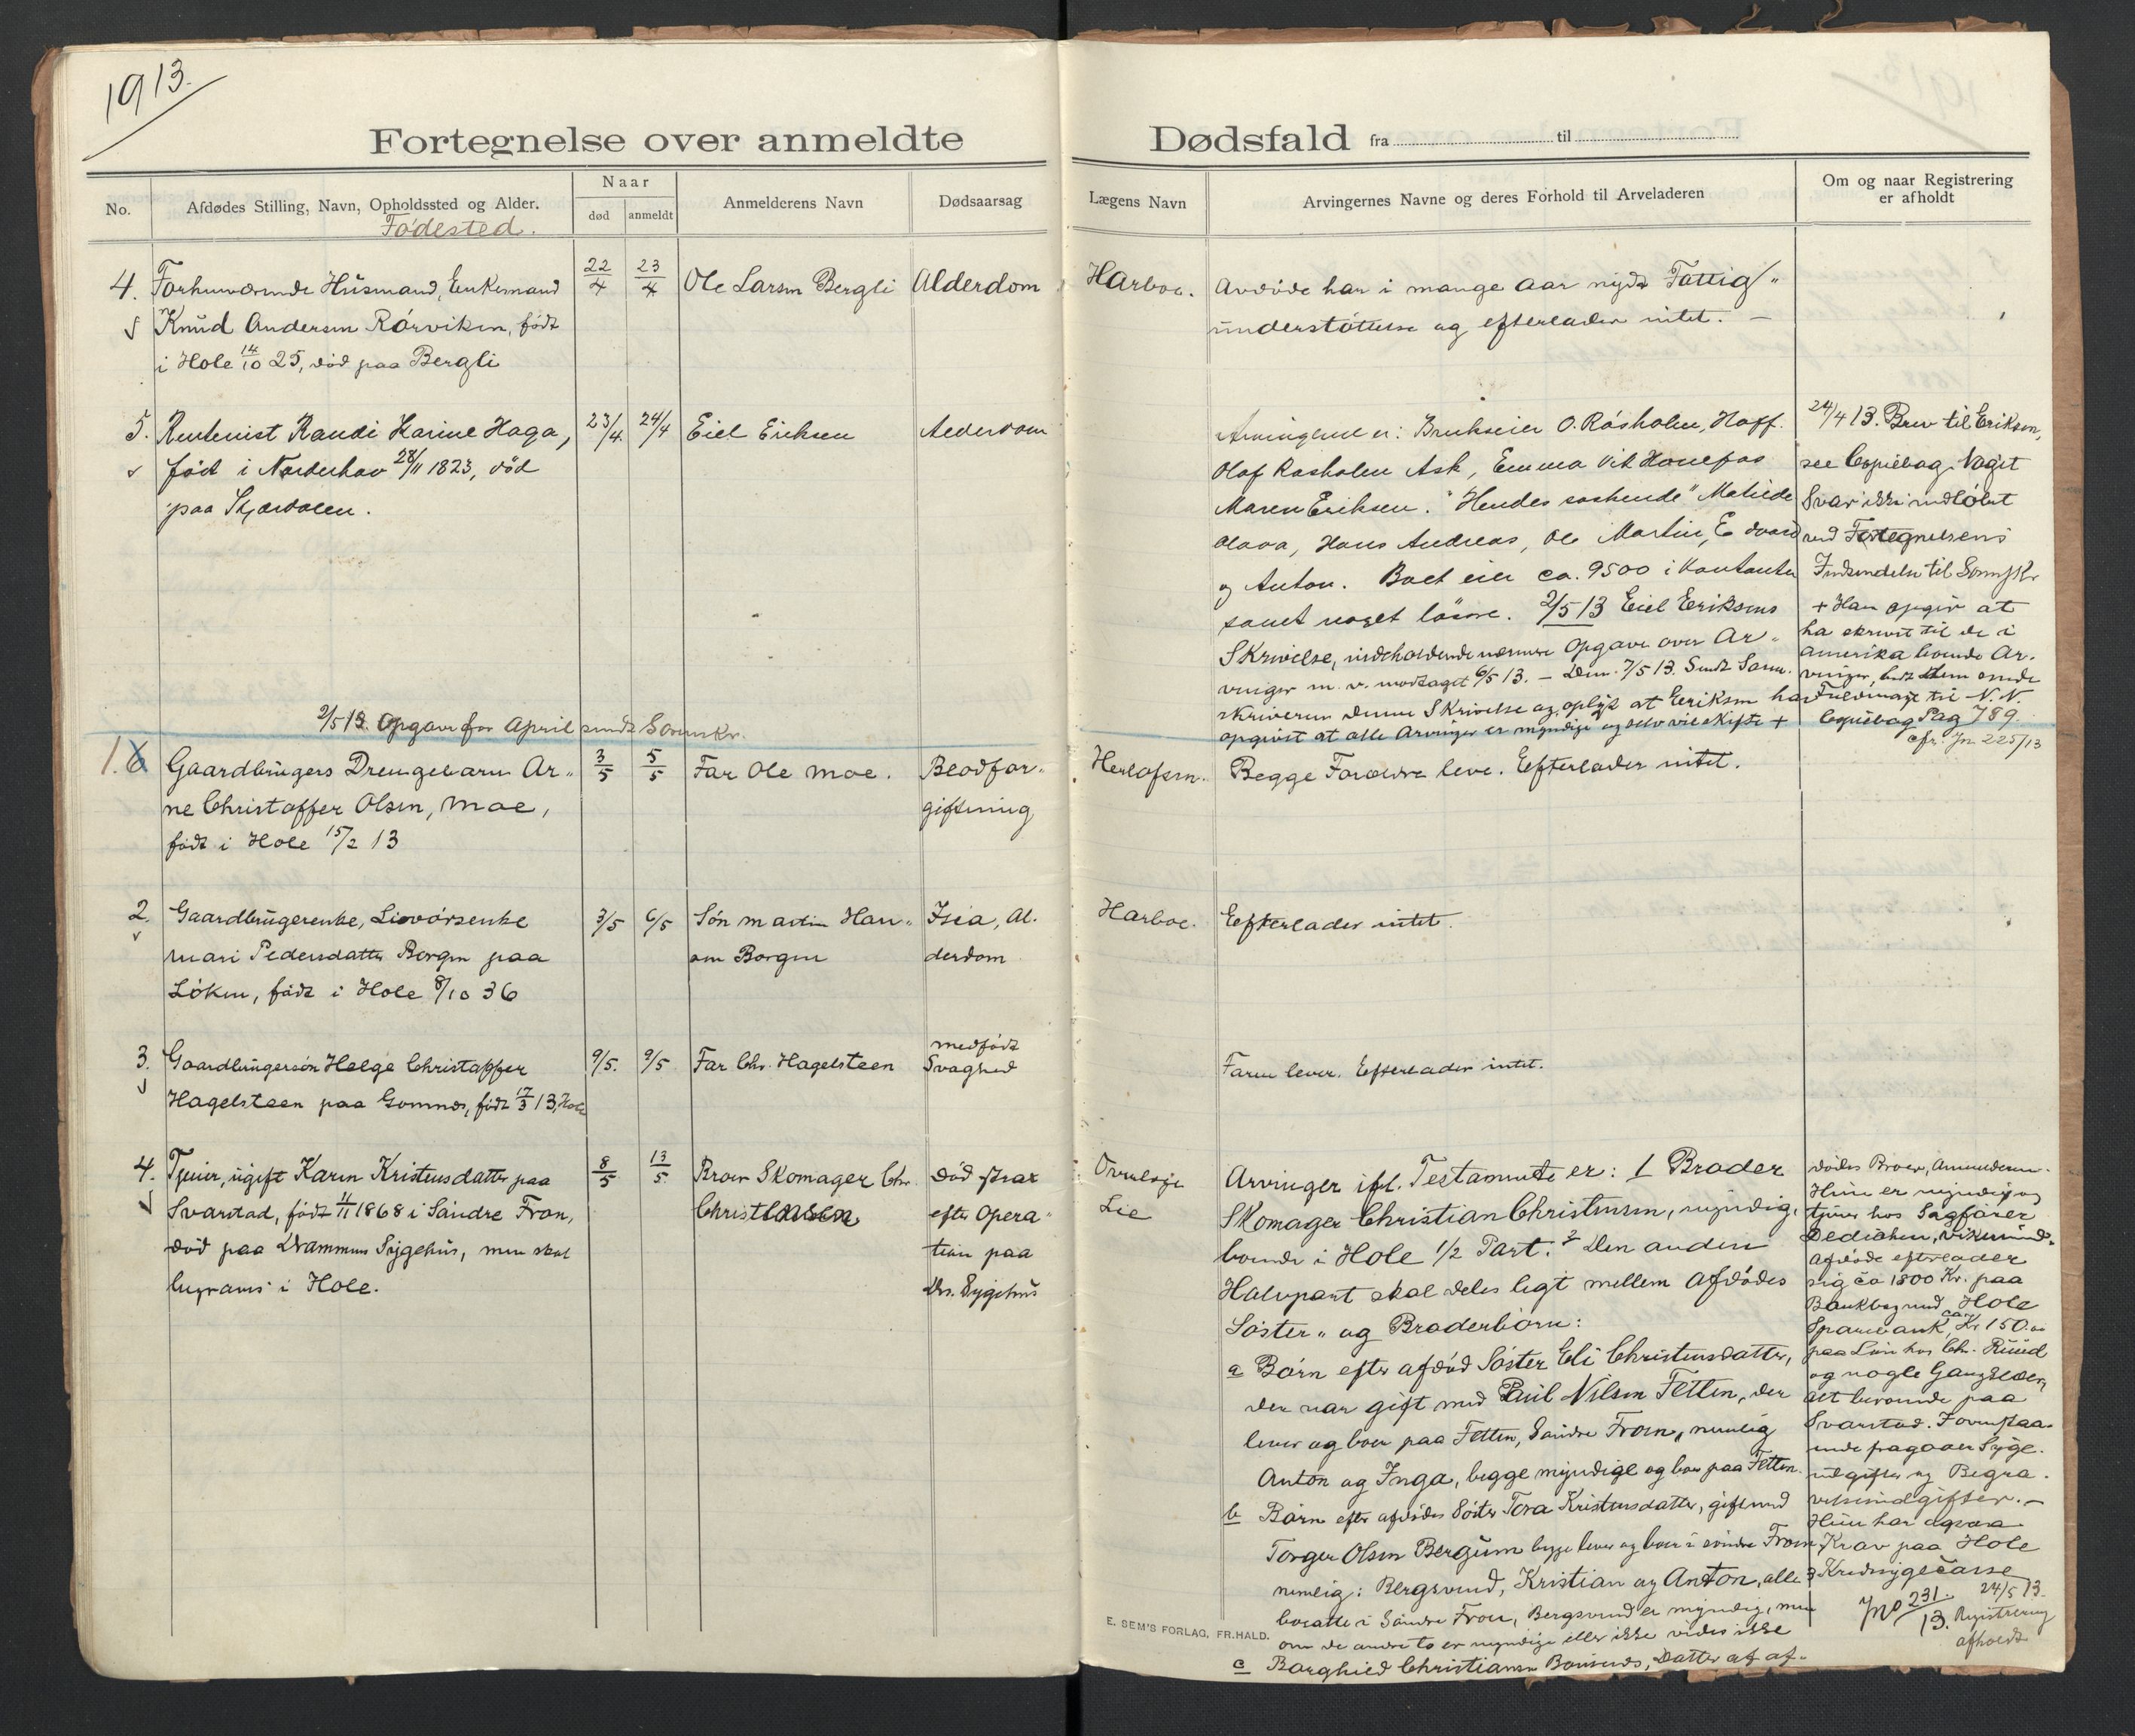 1913.
Fortegnelse over anmeldte
Dødsfald fra til
No.
Afdødes Stilling, Navn, Opholdssted og Alder.
Födested.
Naar
død
anmeldt
Anmelderens Navn
Dødsaarsag
Lægens Navn
Arvingernes Navne og deres Forhold til Arveladeren
Om og naar Registrering
er afholdt
4. Forhenværende Husmand, Enkemand
Knud Andersen Rörviken, född
i Hole 14/10 25, död paa Bergli
22/4 23/4 Ole Larsen Bergli Alderdom
Harboe. Avdöde har i mange Aar nydt Fattig"
understöttelse og efterlader intet. —
5. Rentenist Randi Karine Haga,
född i Norderhov 28/11 1823, död
paa Skjærdalen.
23/4 24/4 Eiel Eriksen Alderdom
Arvingerne er: Brukseier O. Rösholm, Hoff.
Olaf Rosholm Ask, Emma Vik Hönefos
Maren Eriksen. "Hendes söskende" Matilde
Olava, Hans Andreas, Ole Martin, Edvard
og Anton. Boet eier ca. 9500 i Kontanter
samt noget lösöre. 2/5 13 Eiel Eriksens
Skrivelse, indeholdende nærmere Opgave over Ar"
vinger m. v. modtaget 6/5 13. — Dem. 7/5 13. Sendt Soren.
skriveren denne Skrivelse og oplyst at Eriksen har
opgivet at alle Arvinger er myndige og selv vil skifte +
24/4 13. Brev til Eriksen,
see Copiebog. Noget
Svar ikke indlöbet
ved Fortegnelsens
Indsendelse til Sorenskr.
+ Han opgiv at
ha skrevet til de i
Amerika boende Ar.
vinger, bedt dem sende
Fuldmagt til N. N.
Copiebog Pag 789.
cfr. Jn 225/13
2/5 13. Opgave for April sendt Sorenskr.
1. 6 Gaardbrugers Drengebarn Ar"
ne Christoffer Olsen, Moe,
född i Hole 15/2 13
3/5 5/5 Far Ole Moe. Blodfor"
giftning
Herlofsen. Begge Forældre leve. Efterlader intet.
2. Gaardbrugerenke, Livörsenke
Mari Pedersdatter Borgen paa
Löken, född i Hole 8/10 36
3/5 6/5 Sön Martin Han"
sen Borgen
Isia, Al.
derdom
Harboe. Efterlader intet.
3. Gaardbrugersön Helge Christoffer
Hagelsteen paa Gomnæs, född 17/3 13, Hole
9/5. 9/5 Far Chr. Hagelsteen medfödt
Svaghed
Faren lever. Efterlader intet.
4. Tjener, ugift Karen Kristensdatter paa
Svarstad, född 11/11 1868 i Söndre Fron,
död paa Drammens Sygehus, men skal
begraves i Hole.
8/5 13/5 Broer Skomager Chr.
Christensen
Död strax
efter Opera"
tion paa
Drs. Sygehus
Lie
Arvinger ifl. Testamente er: 1 Broder
Skomager Christian Christensen, myndig,
boende i Hole 1/2 Part. 2 Den anden
Halvpart skal deles ligt mellem Afdödes
Söster" og Broderbörn:
a Börn efter afdöd Söster Eli Christensdatter,
der var gift med Paul Nilsen Fetten, der
lever og boer paa Fetten, Söndre Fron, nemlig
Anton og Inga, begge myndige og boer paa Fetten.
b Börn efter afdödes Söster Tora Kristensdatter, gift med
Torger Olsen Bergum begge lever og boer i söndre Fron
nemlig: Bergsvend, Kristian og Anton, alle 3
bosatte i Söndre Fron, Bergsvend er myndig, men
om de andre to er myndige eller ikke vides ikke
c Borghild Christiansen, Datter af af"
dödes Broer, Anmelderen.
Hun er myndig og
tjener hos Sagförer
Dedichen, Vikersund.
Afdöde efterlader
sig ca 1800 Kr. paa
Bankbog med Hole
Sparebank, ca Kr 150.00
paa Laan hos Chr. Ruud
og nogle Gangklær,
alt beroende paa
Svarstad. I ovenstaa"
ende fragaaer Syge.
udgifter og Begra.
velsesudgifter. —
Hun har ogsaa
Krav paa Hole
Kredssygecasse
Jno 231/13. 24/5 13.
Registrering
afholdt
E. SEM'S FORLAG, FR.HALD.